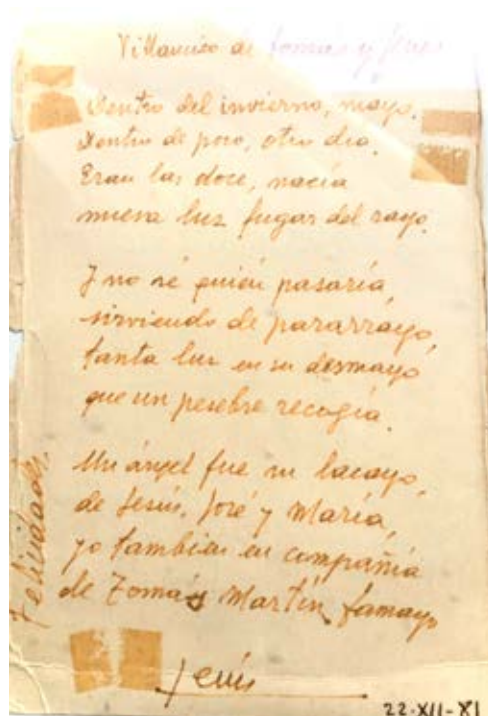 Villancico de Tomás y Jesús
Dentro del invierno, mayo.
Dentro de poco, otro día.
Eran las doce, nacía
nueva luz fugaz del rayo.
Y no sé quién pasaría
sirviendo de pararrayo,
tanta luz en su desmayo
que un pesebre recogía.
Un ángel fue su lacayo,
de Jesús, José y María,
yo también en compañía
de Tomás Martín Tamayo
Felicidades
Jesús
22-XII-81